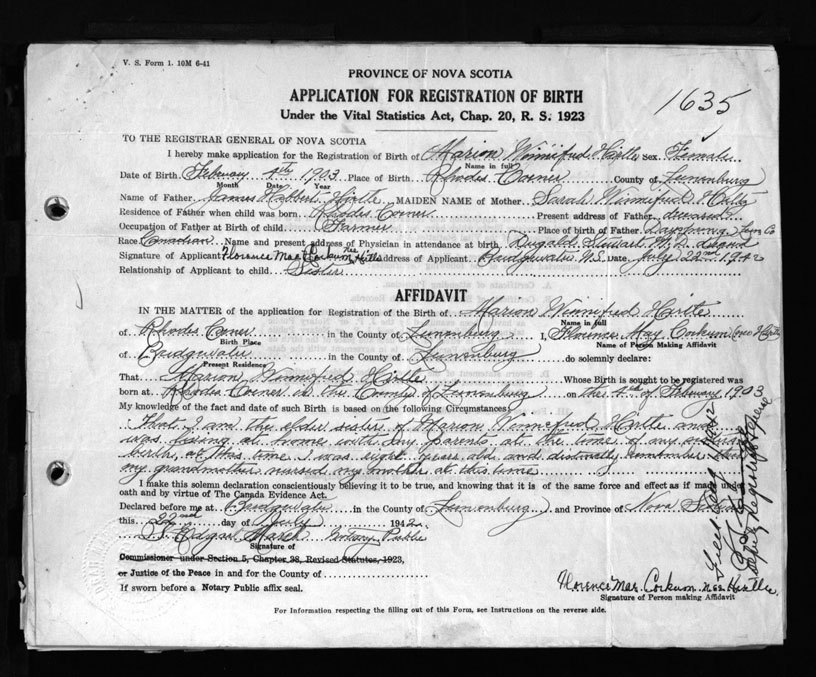 V. S. Form 1. 10M 6-41
PROVINCE OF NOVA SCOTIA
APPLICATION FOR REGISTRATION OF BIRTH
1635
Under the Vital Statistics Act, Chap. 20, R. S. 1923
TO THE REGISTRAR GENERAL OF NOVA SCOTIA
I hereby make application for the Registration of Birth of Marion Winnifred Hirtle Sex Female
Name in full
Date of Birth February 4th 1903 Place of Birth Rhodes Corner County of Lunenburg
Month Date Year
Name of Father James Hibbert Hirtle MAIDEN NAME of Mother Sarah Winnifred
Residence of Father when child was born Rhodes Corner Present address of Father deceased
Occupation of Father at Birth of child Farmer Place of birth of Father Dayspring Lun Co
Race Canadian Name and present address of Physician in attendance at birth Dugald Stewart M.D.
Signature of Applicant Florence Mae Corkum nee Hirtle Address of Applicant Bridgewater N.S. Date July 22nd 1942
Relationship of Applicant to child Sister
AFFIDAVIT
IN THE MATTER of the application for Registration of the Birth of Marion Winnifred Hirtle
Name in full
of Rhodes Corner in the County of Lunenburg I, Florence May Corkum (nee Hirtle)
Birth Place Name of Person Making Affidavit
of Bridgewater in the County of Lunenburg do solemnly declare:
Present Residence
That Marion Winnifred Hirtle Whose Birth is sought to be registered was
born at Rhodes Corner in the County of Lunenburg on the 4th of February 1903
My knowledge of the fact and date of such Birth is based on the following Circumstances
That I am the elder sister of Marion Winnifred Hirtle and
was living at home with my parents at the time of my sister's
birth, at this time I was eight years old and distinctly remember that
my grandmother nursed my mother at this time
I make this solemn declaration conscientiously believing it to be true, and knowing that it is of the same force and effect as if made under
oath and by virtue of The Canada Evidence Act.
Declared before me at Bridgewater in the County of Lunenburg and Province of Nova Scotia
this 22nd day of July 1942
Edgar March Notary Public
Signature of
Commissioner under Section 5, Chapter 38, Revised Statutes, 1923,
or Justice of the Peace in and for the County of
If sworn before a Notary Public affix seal.
Florence Mae Corkum nee Hirtle
Signature of Person making Affidavit
For Information respecting the filling out of this Form, see Instructions on the reverse side.